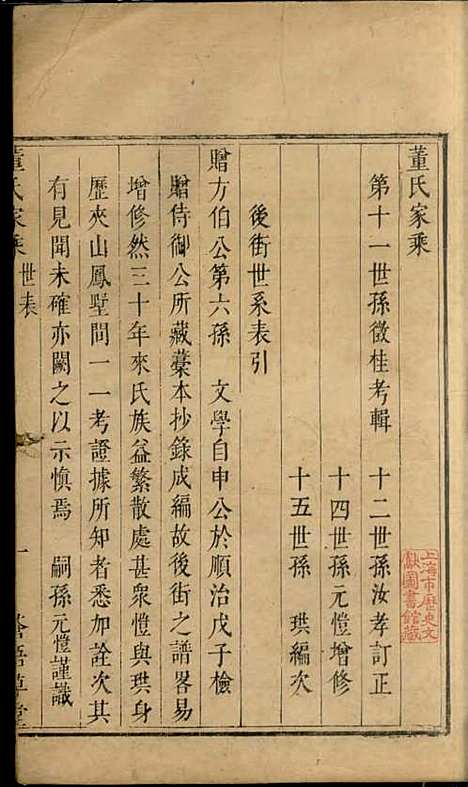 董氏家乘
第十一世孫徵桂考輯　十二世孫汝孝訂正
十四世孫元愷增修
十五世孫　珙編次
後街世系表引
贈方伯公第六孫　文學自申公於順治戊子檢
贈侍御公所藏藁本抄錄成編故後街之譜畧易
增修然三十年來氏族益繁散處甚衆愷與珙身
歷夾山鳳墅問一一考證據所知者悉加詮次其
有見聞未確亦闕之以示慎焉　嗣孫元愷謹識
董氏家乘　世表　一
上海市歷史文
獻圖書館藏